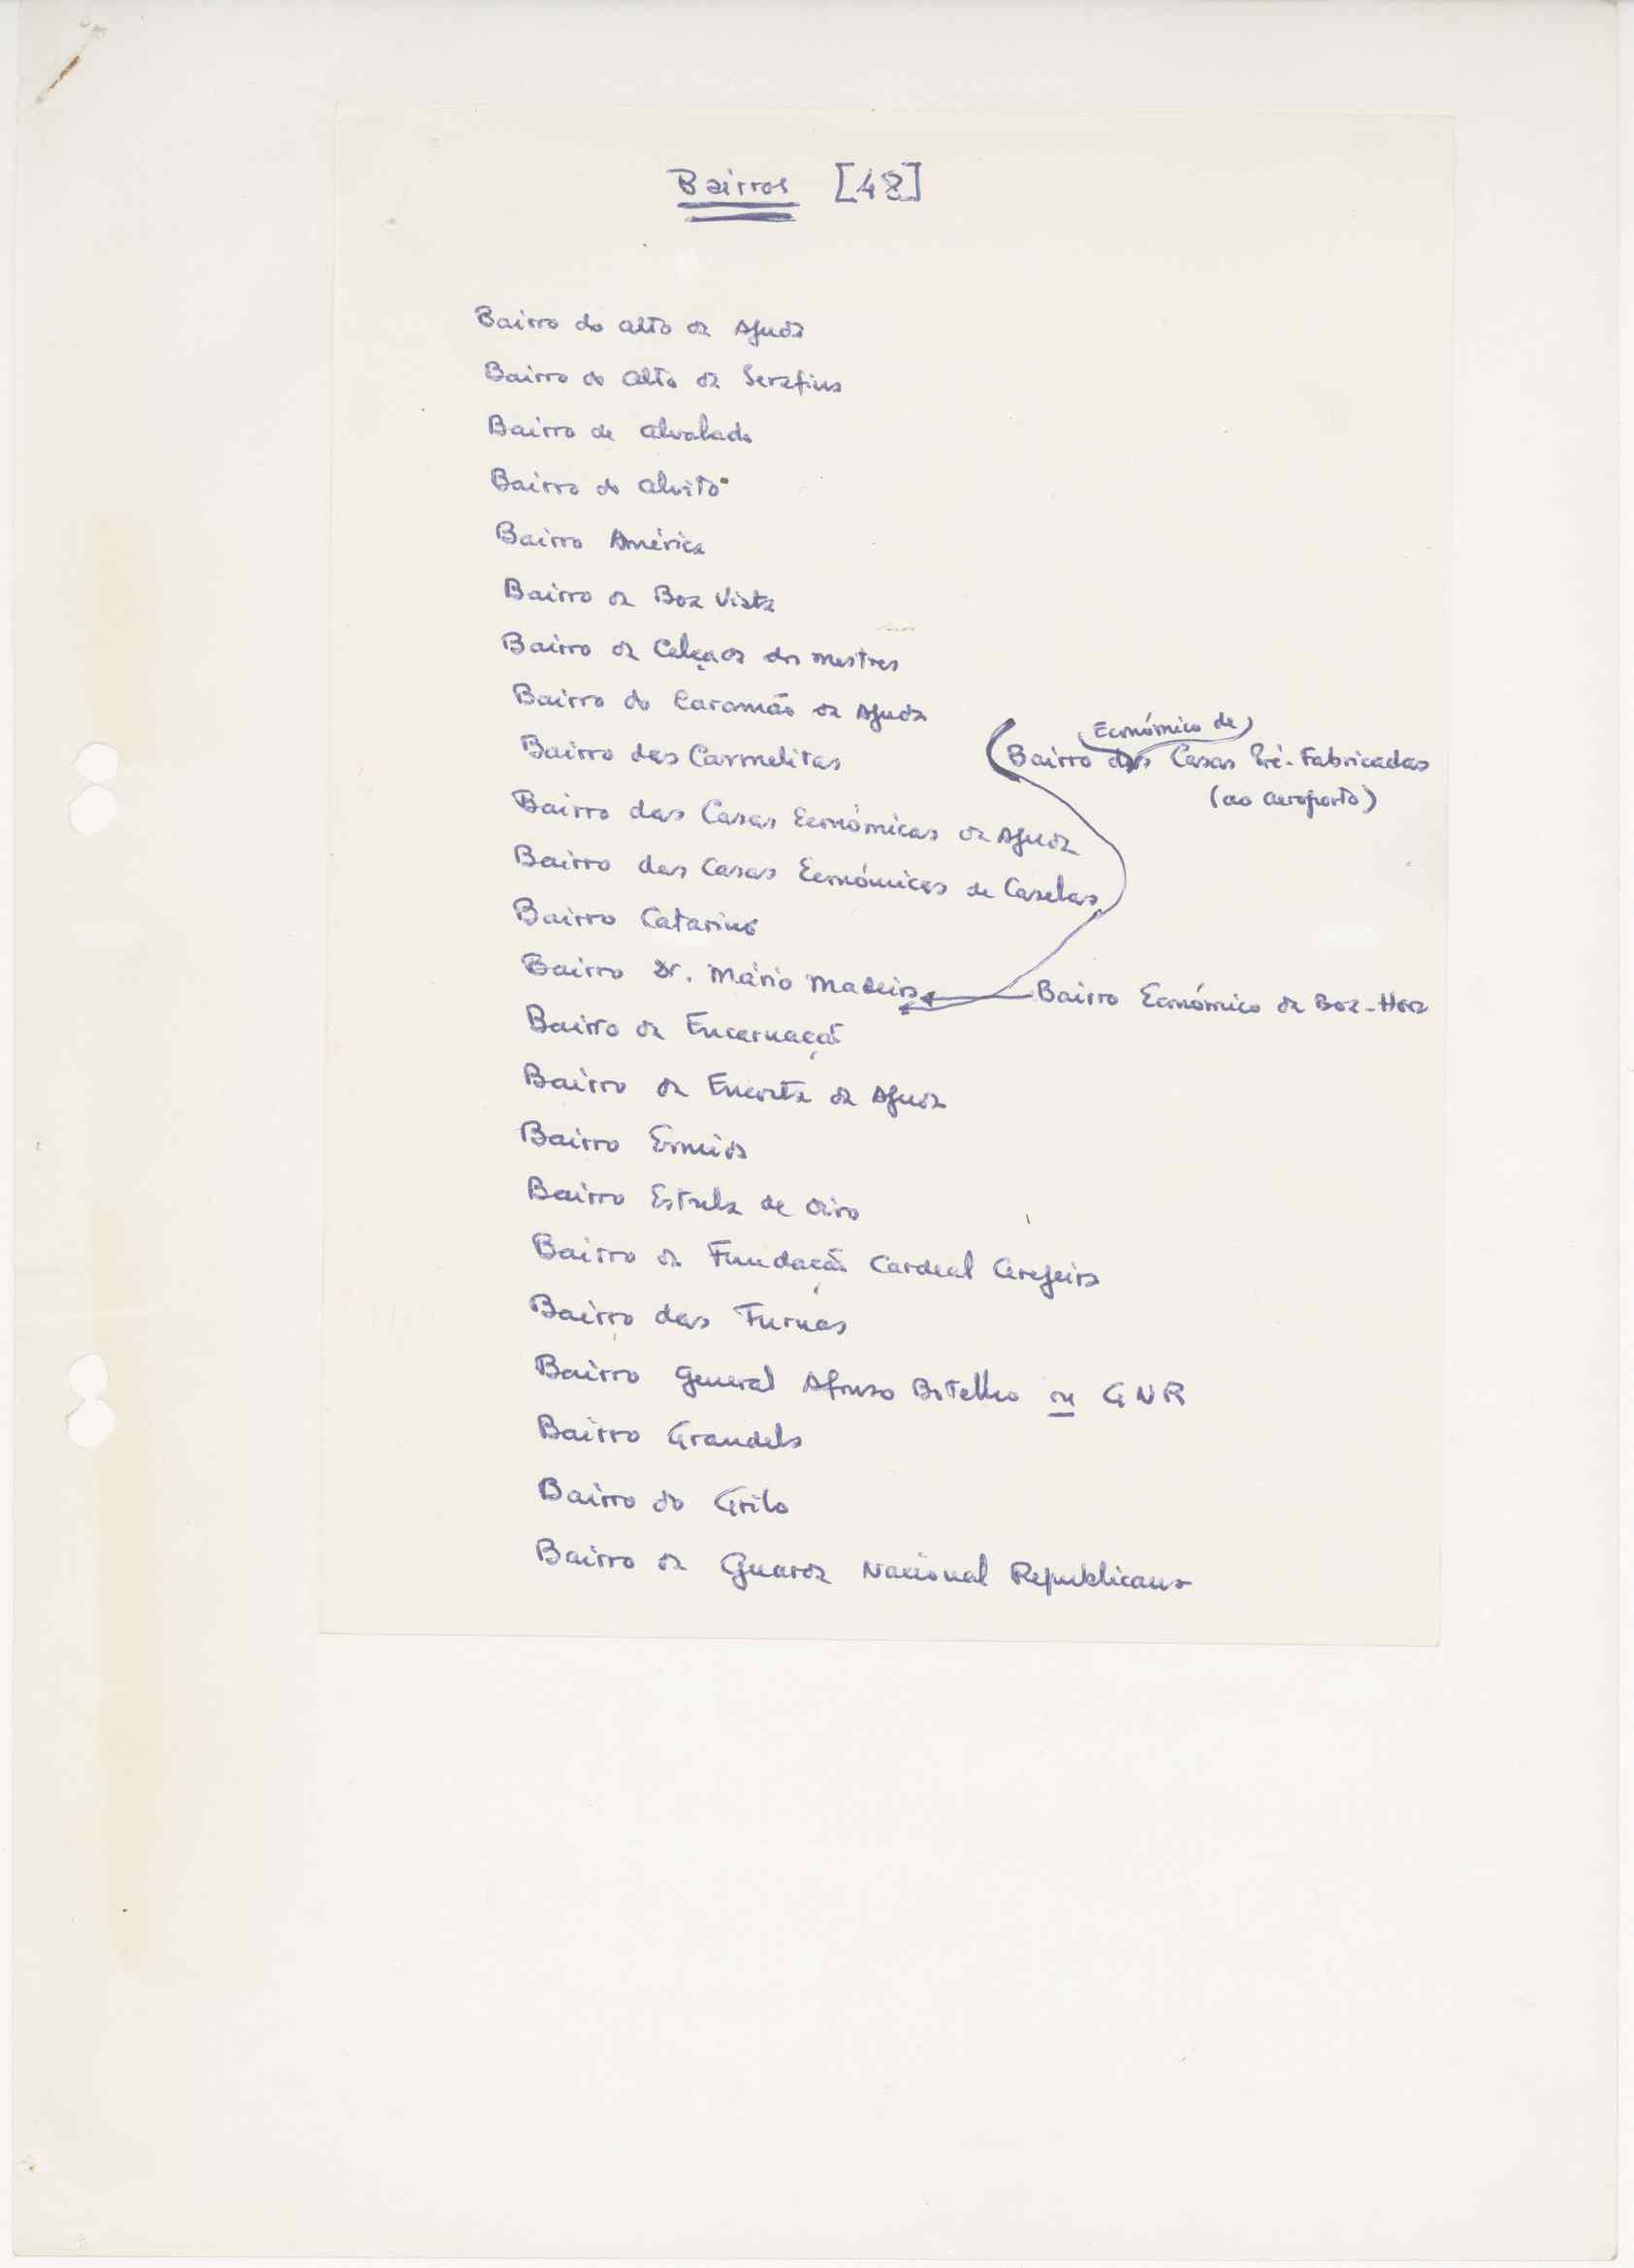 Bairros [48]
Bairro do alto da Ajuda
Bairro do alto da Serafina
Bairro de alvalade
Bairro do alvito
Bairro América
Bairro da Boa Vista
Bairro da Calçada dos mestres
Bairro do Caramão da Ajuda
Bairro das Carmelitas
Económico de
Bairro das Casas Pré-Fabricadas
(ao aeroporto)
Bairro das Casas Económicas da Ajuda
Bairro das Casas Económicas de Caselas
Bairro Catarino
Bairro Dr. Mário Madeira
Bairro Económico da Boa-Hora
Bairro da Encarnação
Bairro da Encosta da Ajuda
Bairro Ermida
Bairro Estrela de Oiro
Bairro da Fundação Cardeal Cerejeira
Bairro das Furnas
Bairro General Afonso Botelho ou GNR
Bairro Grandela
Bairro do Grilo
Bairro da Guarda Nacional Republicana